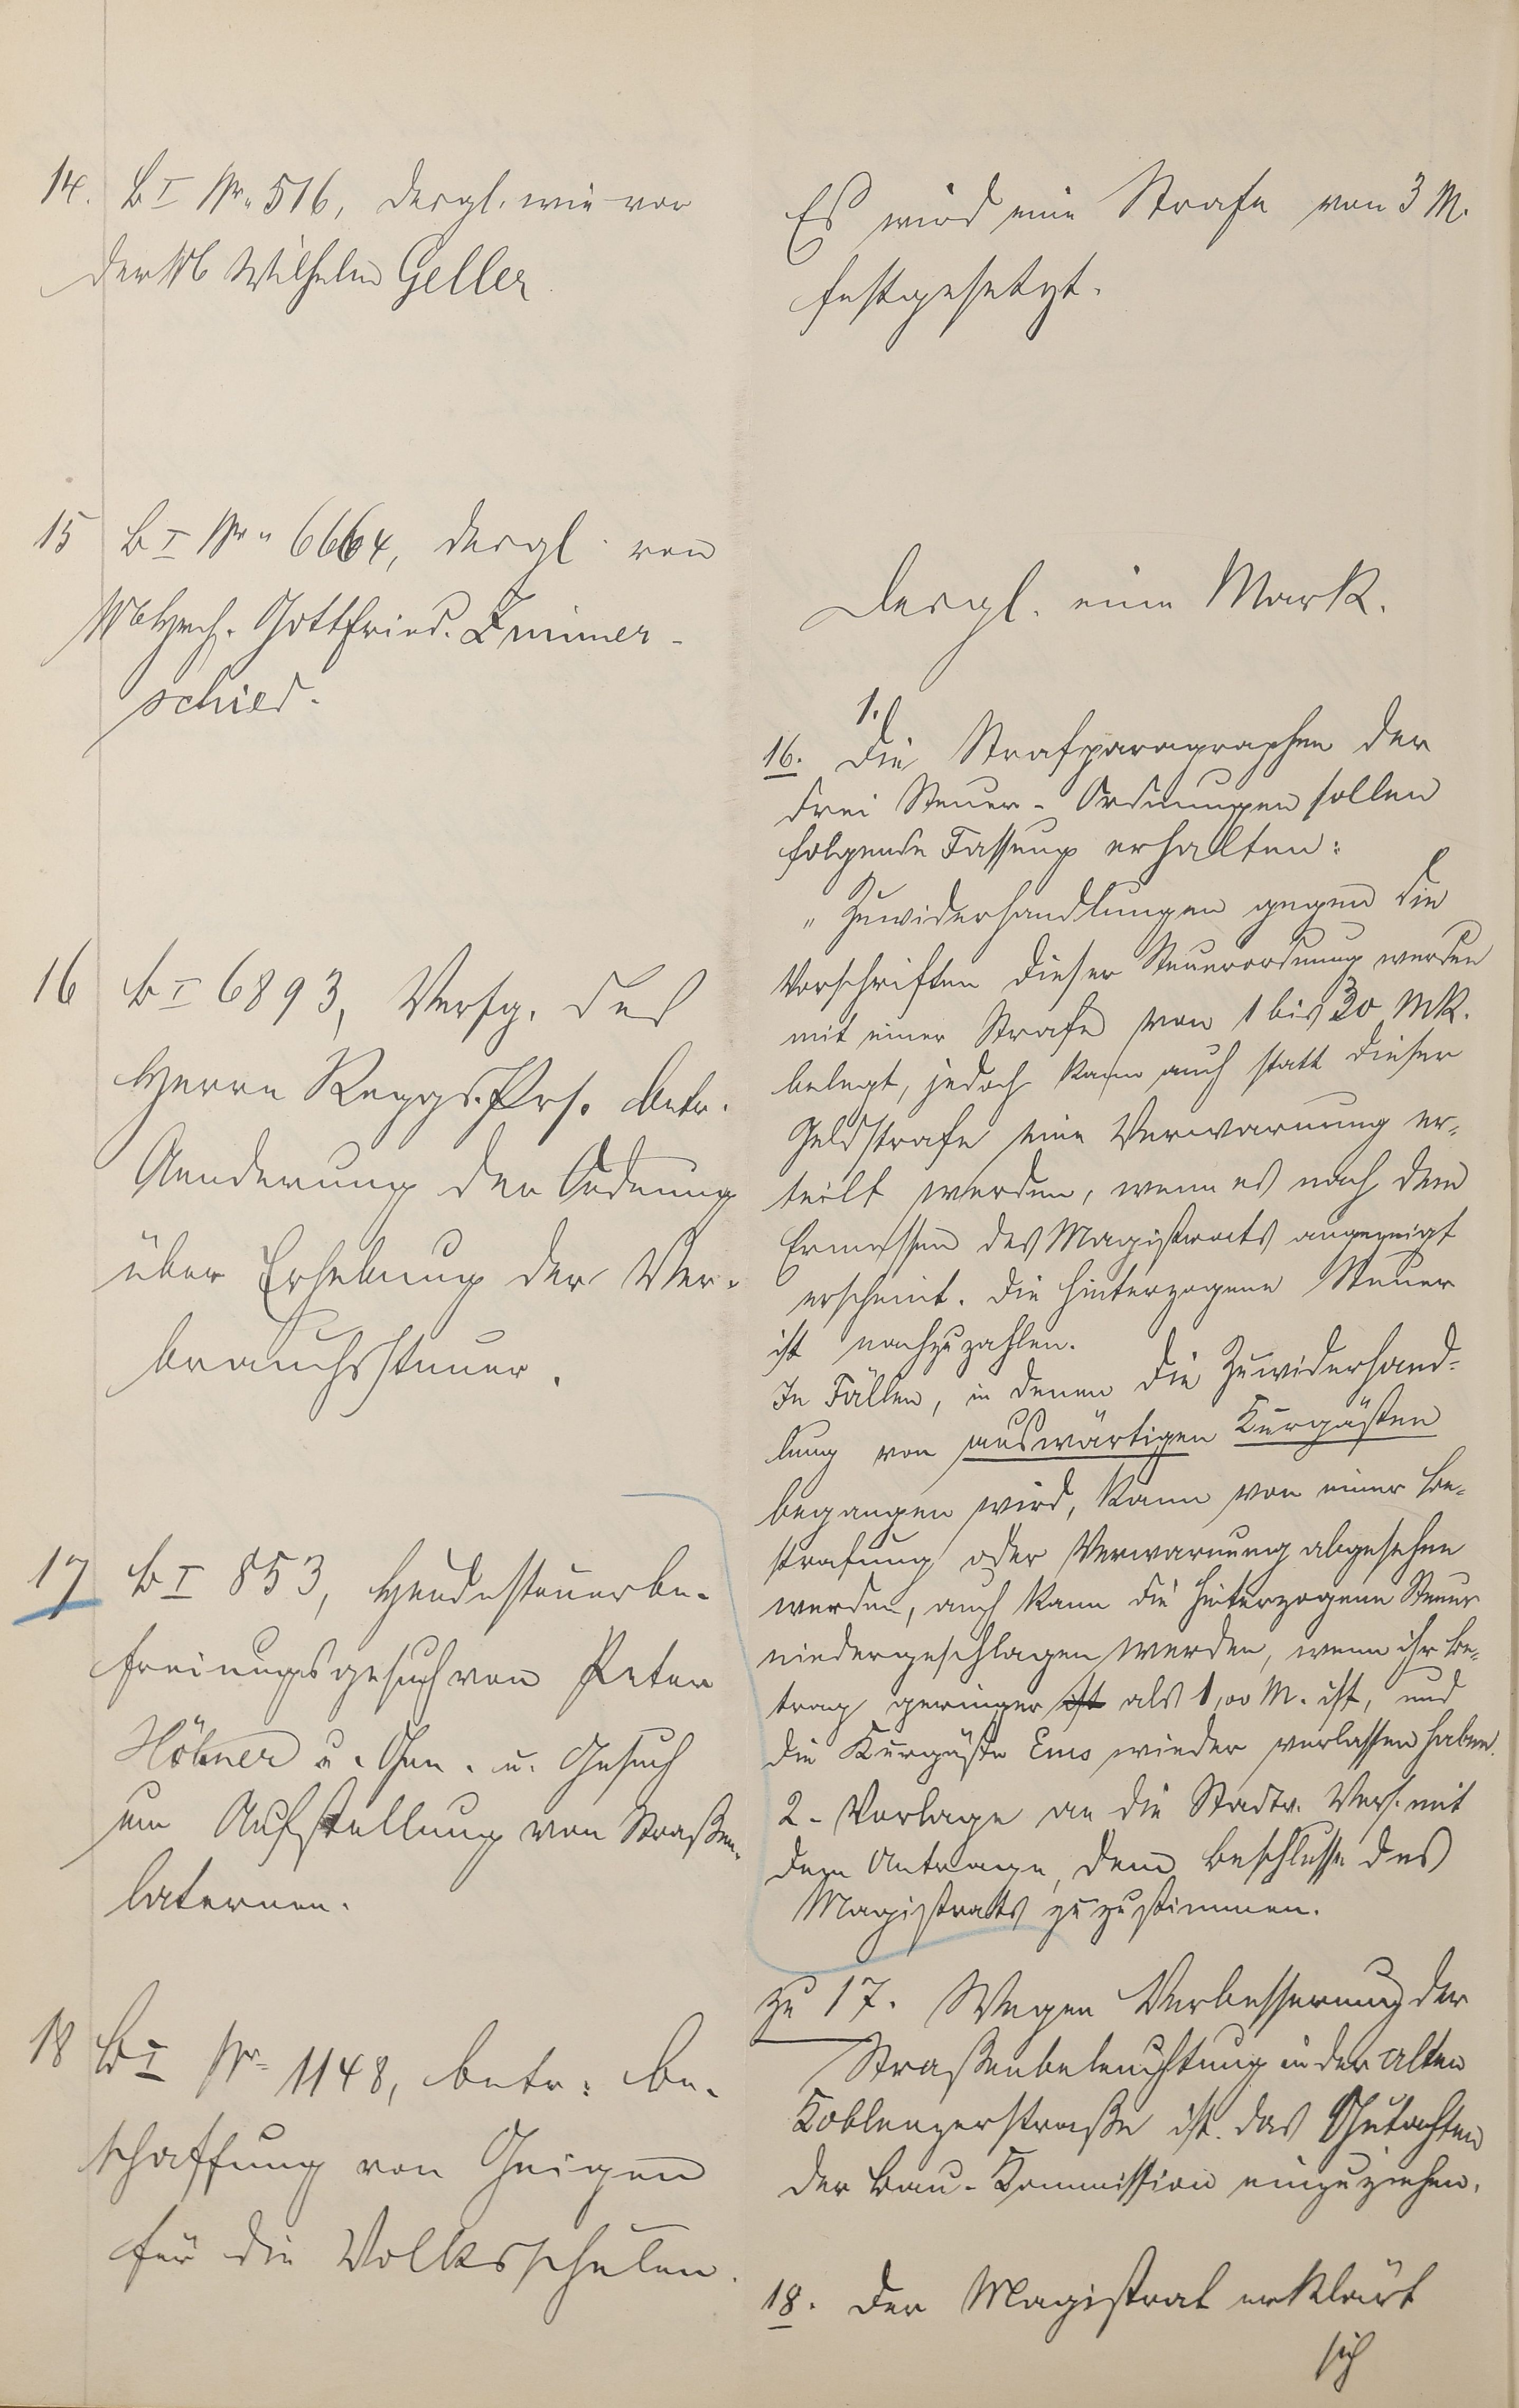 14. B I Nr. 516, desgl. wie vor
der Wilhelm Geller
Es wird eine Strafe von 3 M.
festgesetzt.
15 B I Nr. 6664, desgl. von
Gottfried Zimmer-
schied.
Desgl. eine Mark.
16 B I 6893, Verfg. des
Herrn Reggs. Prs. betr.
Aenderung der Ordnung
über Erhebung der Ver-
brauchssteuer.
1.
16. Die Strafparagraphen der
drei Steuer-Ordnungen sollen
folgende Fassung erhalten:
"Zuwiderhandlungen gegen die
Vorschriften dieser Steuerordnung werden
mit einer Strafe von 1 bis 30 Mk.
belegt, jedoch kann auch statt dieser
Geldstrafe eine Verwarnung er-
teilt werden, wenn es nach dem
Ermessen des Magistrats angezeigt
erscheint. Die hinterzogene Steuer
ist nachzuzahlen.
In Fällen, in denen die Zuwiderhand-
lung von auswärtigen Kurgästen
begangen wird, kann von einer Be-
strafung oder Verwarnung abgesehen
werden, auch kann die hinterzogene Steuer
niedergeschlagen werden, wenn ihr Be-
trag geringer ist als 1,00 M. ist, und
die Kurgäste Ems wieder verlassen haben.
2. Vorlage an die Stadtv. Vers. mit
dem Antrage, dem Beschlusse des
Magistrats zuzustimmen.
17 B I 853, Hundesteuerbe-
freiungsgesuch von Peter
Höhner u. Gen. u. Gesuch
um Aufstellung von Straßen-
laternen.
zu 17. Wegen Verbesserung der
Straßenbeleuchtung in der alten
Koblenzerstraße ist das Gutachten
der Bau-Kommission einzuziehen.
18 B I Nr. 1148, betr. Be-
schaffung von Geigen
für die Volksschulen.
18. Der Magistrat erklärt
sich